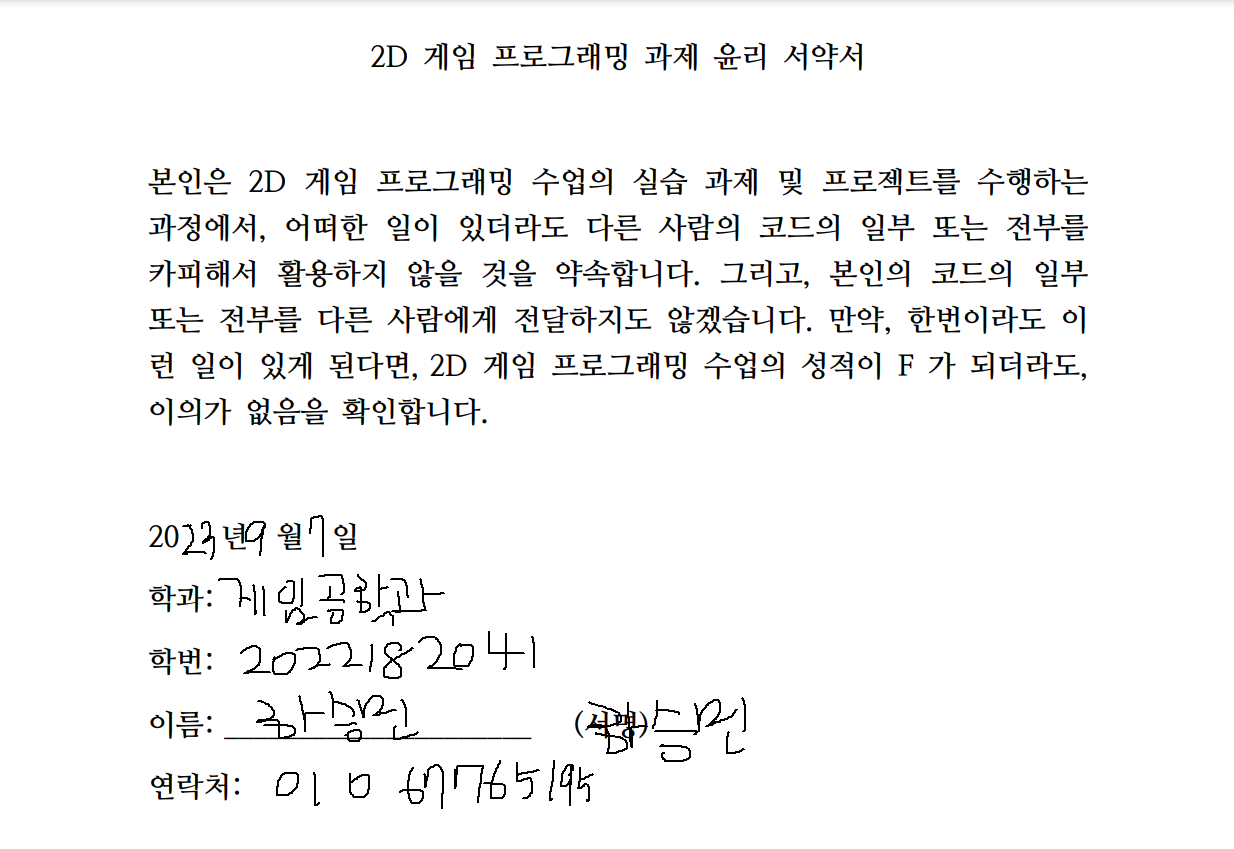 2D 게임 프로그래밍 과제 윤리 서약서
본인은 2D 게임 프로그래밍 수업의 실습 과제 및 프로젝트를 수행하는
과정에서, 어떠한 일이 있더라도 다른 사람의 코드의 일부 또는 전부를
카피해서 활용하지 않을 것을 약속합니다. 그리고, 본인의 코드의 일부
또는 전부를 다른 사람에게 전달하지도 않겠습니다. 만약, 한번이라도 이
런 일이 있게 된다면, 2D 게임 프로그래밍 수업의 성적이 F 가 되더라도,
이의가 없음을 확인합니다.
2023년 9월 7일
학과: 게임공학과
학번: 2022182041
이름: 하승민 (서명)
연락처: 010 67765195